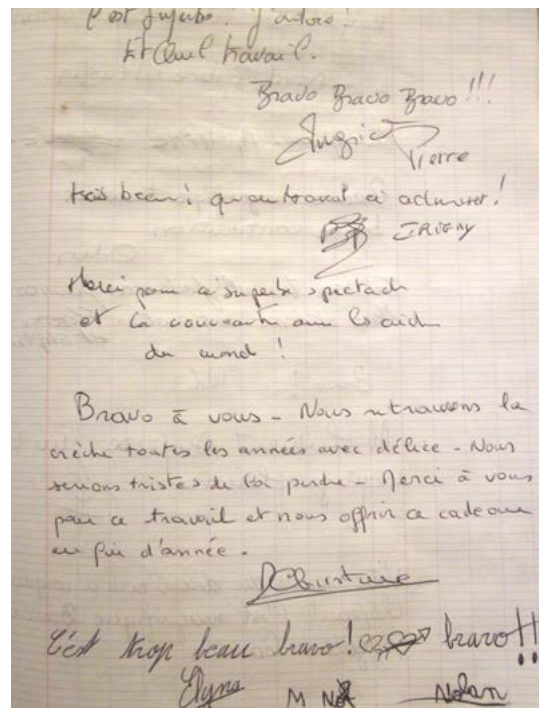 C'est superbe ! J'adore !
Et Quel travail.
Bravo Bravo Bravo !!!
Pierre
très beau ! quel travail à admirer !
IRIGNY
Merci pour ce superbe spectacle
et la
du monde !
Bravo à vous - Nous retrouvons la
crèche toutes les années avec délice - Nous
serions tristes de la perdre - Merci à vous
pour ce travail et nous offrir ce cadeau
en fin d'année.
C'est trop beau bravo ! bravo !!
Elyna M Nolan